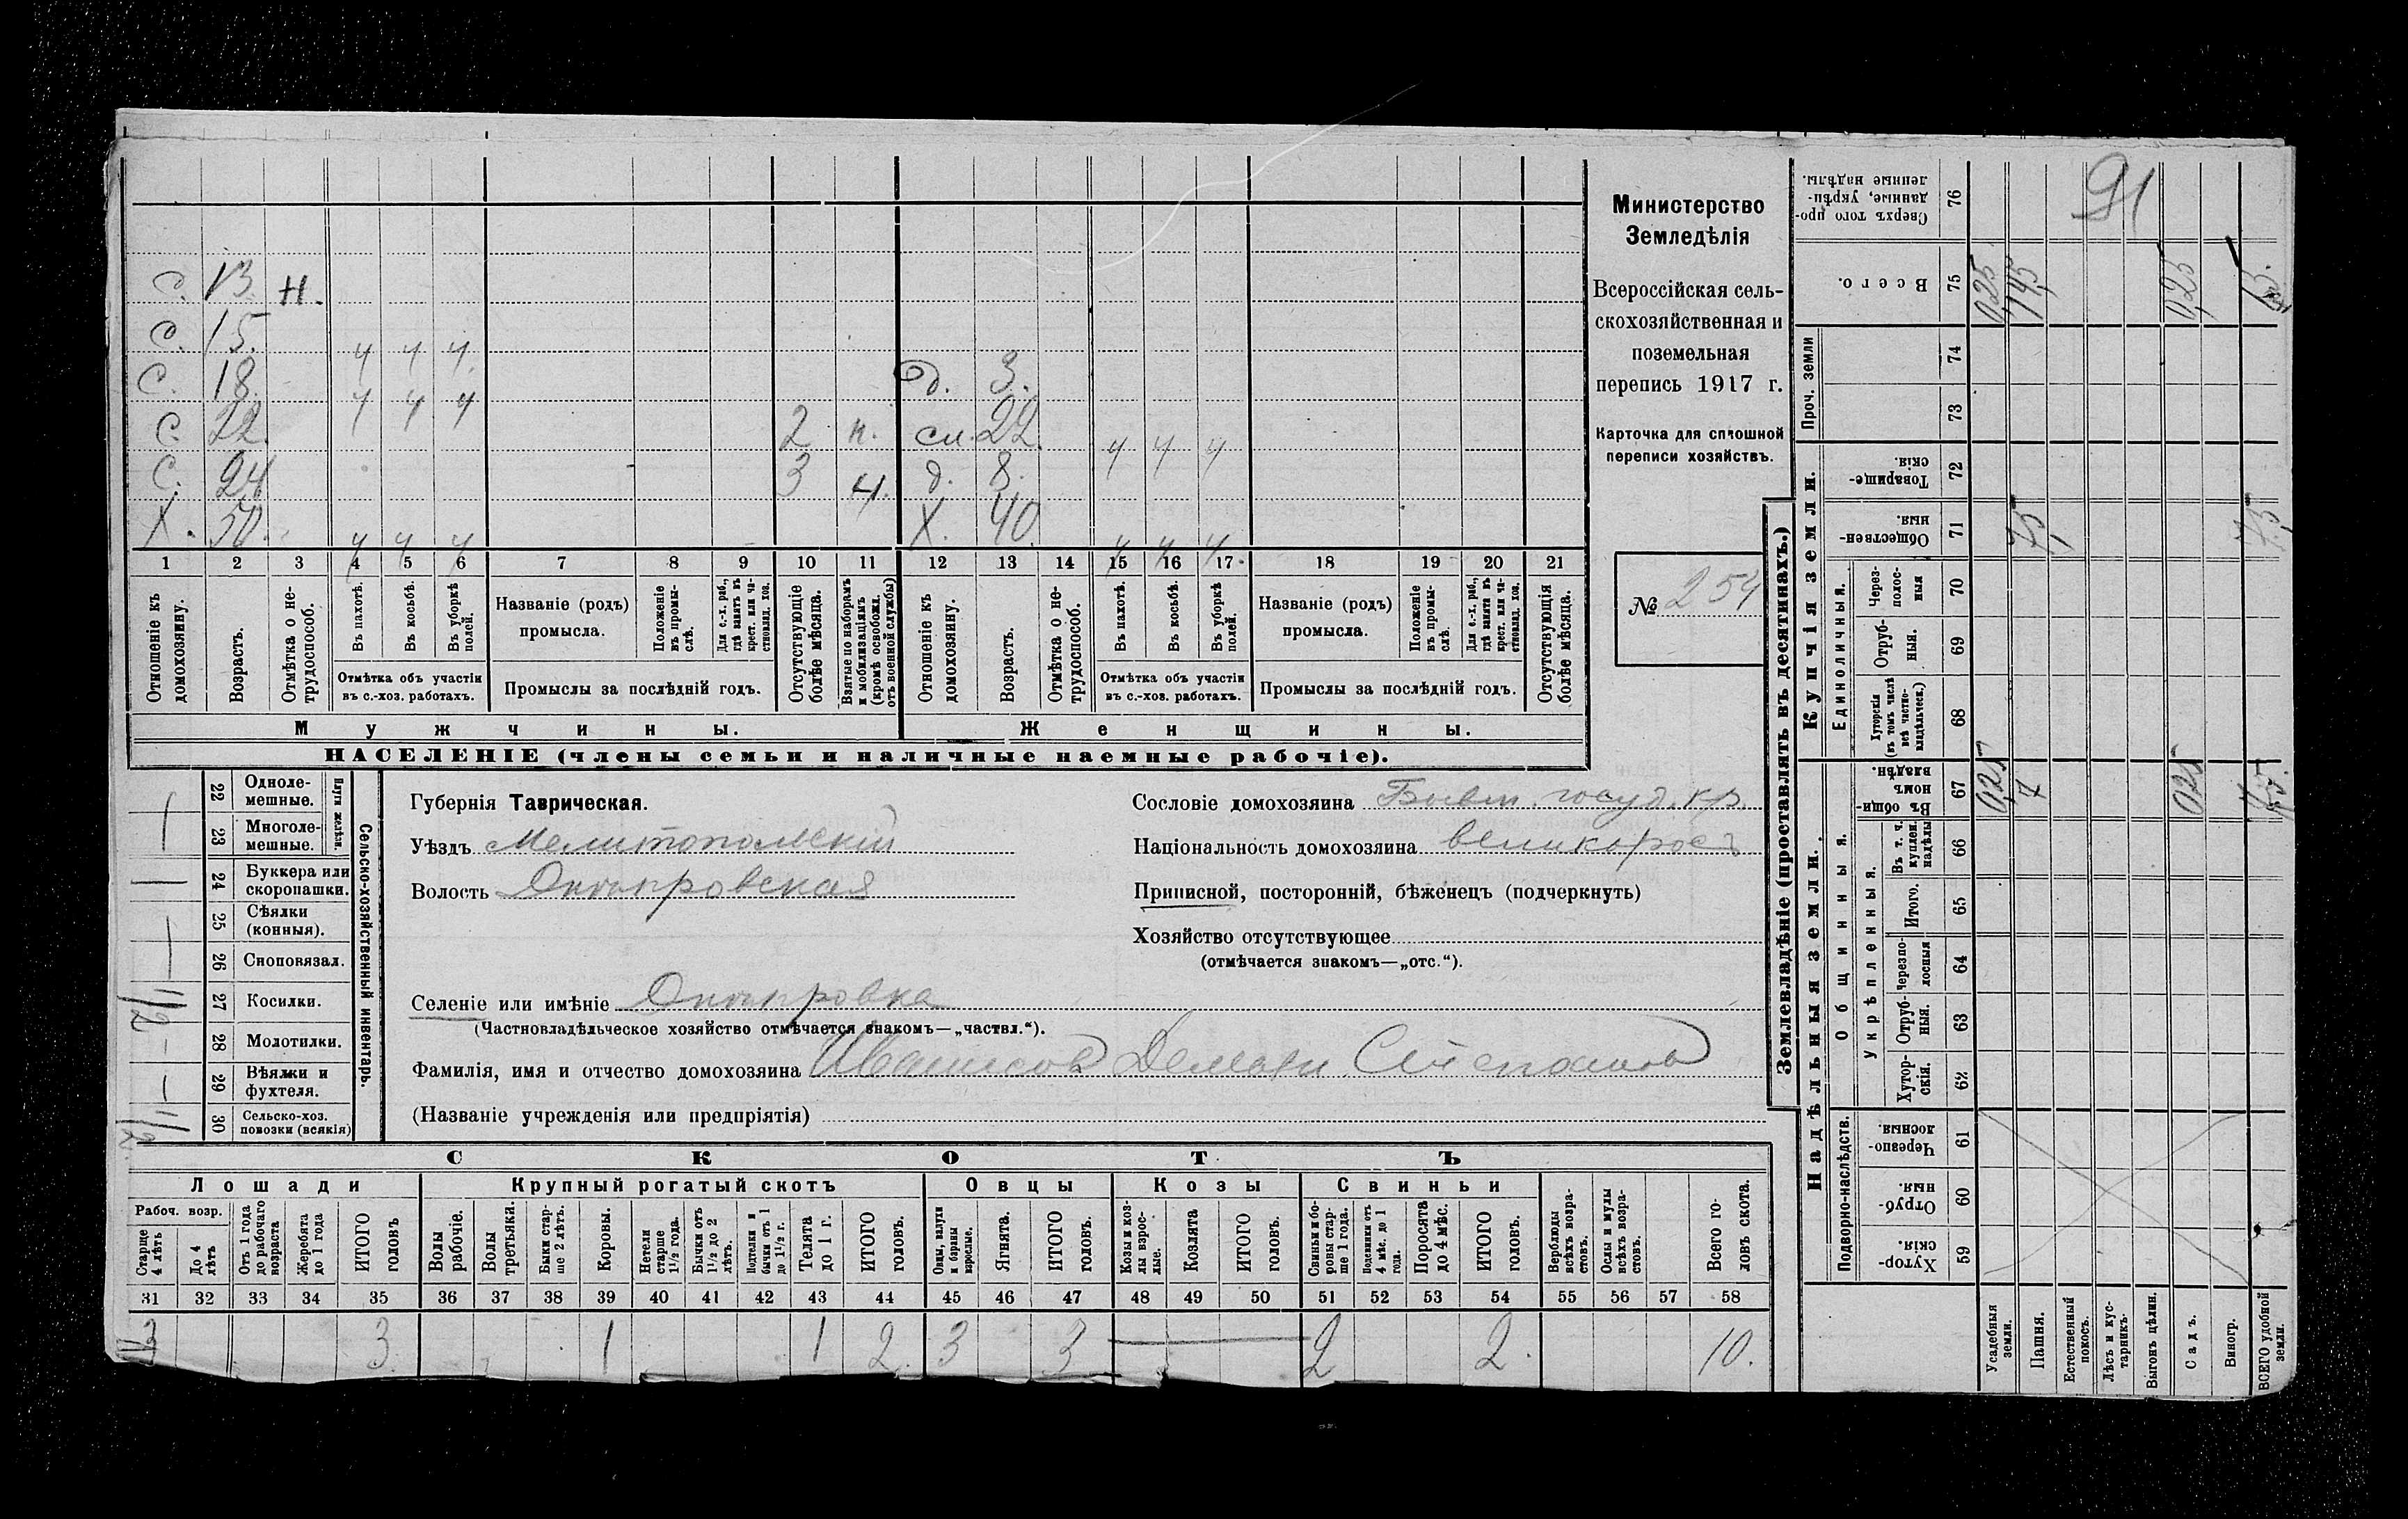 С. 13. н.
С. 15. ч ч ч
С. 18. ч ч ч д. 3.
С. 22. 2 н. сн. 22. ч ч ч
С. 24 3 ч. д. 8.
Х. 50. ч ч ч Х. 40 ч ч ч
1 2 3 4 5 6 7 8 9 10 11 12 13 14 15 16 17 18 19 20 21
Отношеніе къ домохозяину.
Возрастъ.
Отмѣтка о не-трудоспособ.
Въ пахотѣ.
Въ косьбѣ.
Въ уборкѣ полей.
Отмѣтка объ участіи въ с.-хоз. работахъ.
Названіе (родъ) промысла.
Положеніе въ промы-слѣ.
Для с.-х. раб., гдѣ занятъ въ крест. или ча-стновлад. хоз.
Промыслы за послѣдній годъ.
Отсутствующіе болѣе мѣсяца.
Взятые по наборамъ и мобилизаціямъ (кромѣ освобожд. отъ военной службы)
Отношеніе къ домохозяину.
Возрастъ.
Отмѣтка о не-трудоспособ.
Въ пахотѣ.
Въ косьбѣ.
Въ уборкѣ полей.
Отмѣтка объ участіи въ с.-хоз. работахъ.
Названіе (родъ) промысла.
Положеніе въ промы-слѣ.
Для с.-х. раб., гдѣ занята въ крест. или ча-стновлад. хоз.
Промыслы за послѣдній годъ.
Отсутствующія болѣе мѣсяца.
Мужчины. Женщины.
НАСЕЛЕНІЕ (члены семьи и наличные наемные рабочіе).
Министерство
Земледѣлія
Всероссійская сель-
скохозяйственная и
поземельная
перепись 1917 г.
Карточка для сплошной
переписи хозяйствъ.
№ 254
22 Одноле-мешные.
23 Многоле-мешные.
Плуги желѣзн.
24 Буккера или скоропашки.
25 Сѣялки (конныя).
26 Сноповязал.
27 Косилки.
28 Молотилки.
29 Вѣялки и фухтеля.
30 Сельско-хоз. повозки (всякія)
Сельско-хозяйственный инвентарь.
Губернія Таврическая.
Уѣздъ Мелитопольскій
Волость Днѣпровская
Сословіе домохозяина Бывш. госуд. кр.
Національность домохозяина великороссъ
Приписной, посторонній, бѣженецъ (подчеркнуть)
Хозяйство отсутствующее
(отмѣчается знакомъ—„отс.“).
Селеніе или имѣніе Днѣпровка
(Частновладѣльческое хозяйство отмѣчается знакомъ—„частвл.“).
Фамилія, имя и отчество домохозяина Степанов
(Названіе учрежденія или предпріятія)
СКОТЪ
Лошади Крупный рогатый скотъ Овцы Козы Свиньи
Рабоч. возр.
Старше 4 лѣтъ
До 4 лѣтъ
Отъ 1 года до рабочаго возраста
Жеребята до 1 года
ИТОГО головъ
Волы рабочіе.
Волы третьяки.
Быки стар-ше 2 лѣтъ.
Коровы.
Нетели старше 1½ года.
Бычки отъ 1½ до 2 лѣтъ.
Подтелки и бычки отъ 1 до 1½ г.
Телята до 1 г.
ИТОГО головъ.
Овцы, валухи и бараны взрослые.
Ягнята.
ИТОГО головъ.
Козы и коз-лы взрос-лые.
Козлята
ИТОГО головъ.
Свиньи и бо-ровы стар-ше 1 года.
Подсвинки отъ 4 мѣс. до 1 года.
Поросята до 4 мѣс.
ИТОГО головъ.
Верблюды всѣхъ возра-стовъ.
Ослы и мулы всѣхъ возра-стовъ.
Всего го-ловъ скота.
31 32 33 34 35 36 37 38 39 40 41 42 43 44 45 46 47 48 49 50 51 52 53 54 55 56 57 58
3 3 1 1 2 3 3 2 2. 10.
Землевладѣніе (проставлять въ десятинахъ.)
Надѣльныя земли. Купчія земли. Проч. земли
Подворно-наслѣдств. Общинныя. Укрѣпленныя. Единоличныя.
59 Хутор-скія.
60 Отруб-ныя.
61 Черезпо-лосныя.
62 Хутор-скія.
63 Отруб-ныя.
64 Черезпо-лосныя
65 Итого.
66 Въ т. ч. куплен. надѣлы
67 Въ общи-номъ владѣн.
68 Хуторскія (въ томъ числѣ всѣ частно-владѣльческ.)
69 Отруб-ныя.
70 Через-полос-ныя
71 Обществен-ныя.
72 Товарище-скія.
73
74
75 Всего.
76 Сверхъ того про-данные, укрѣп-ленные надѣлы.
91
Усадебныя земли. 0,25 0,25
Пашня. 7 7,5 14,5
Естественный покосъ.
Лѣсъ и кус-тарникъ.
Выгонъ цѣлин.
Садъ. 0,25 0,25
Виногр.
ВСЕГО удобной земли. 7,5 7,5